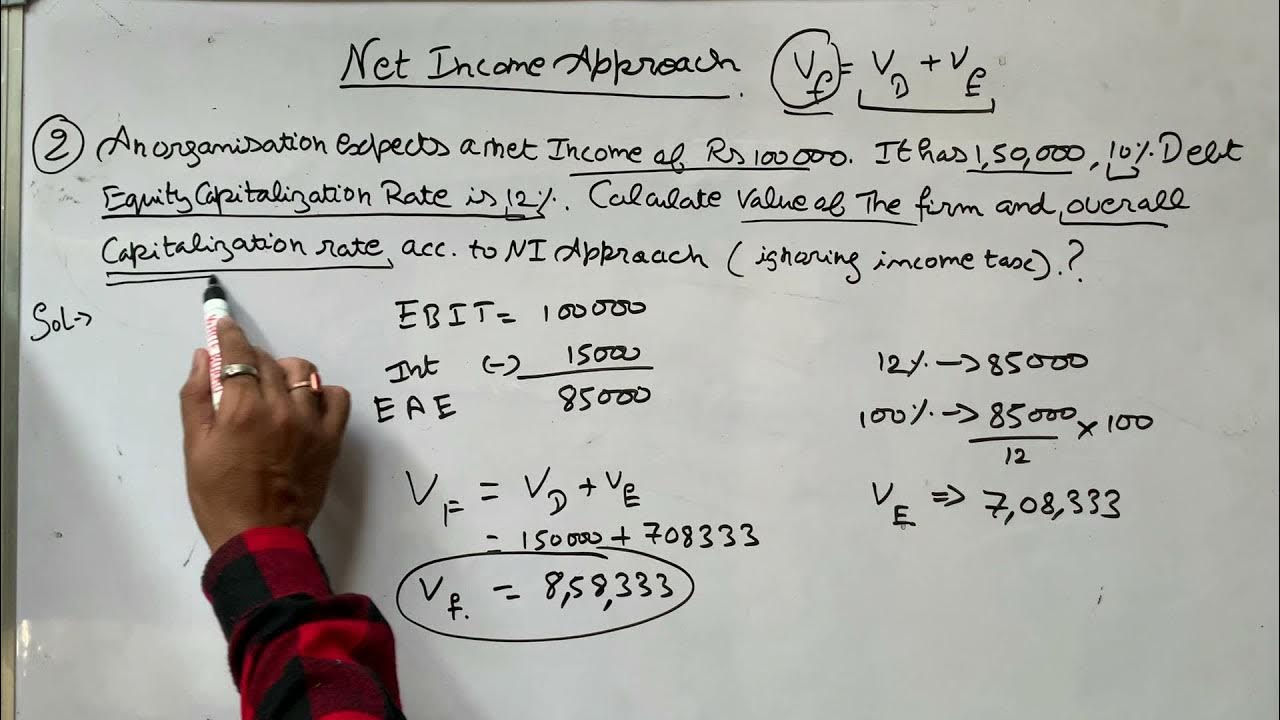 Net Income Approach. Vf = VD + VE
② An organisation expects a net Income of Rs 100000. It has 1,50,000, 10% Debt
Equity Capitalization Rate is 12%. Calculate Value of The firm and overall
Capitalization rate, acc. to NI Approach (ignoring income tax).?
Sol→
EBIT = 100000
Int (-) 15000
EAE 85000
12% → 85000
100% → 85000 × 100
12
VE ⇒ 7,08,333
VF = VD + VE
= 150000 + 708333
Vf. = 8,58,333